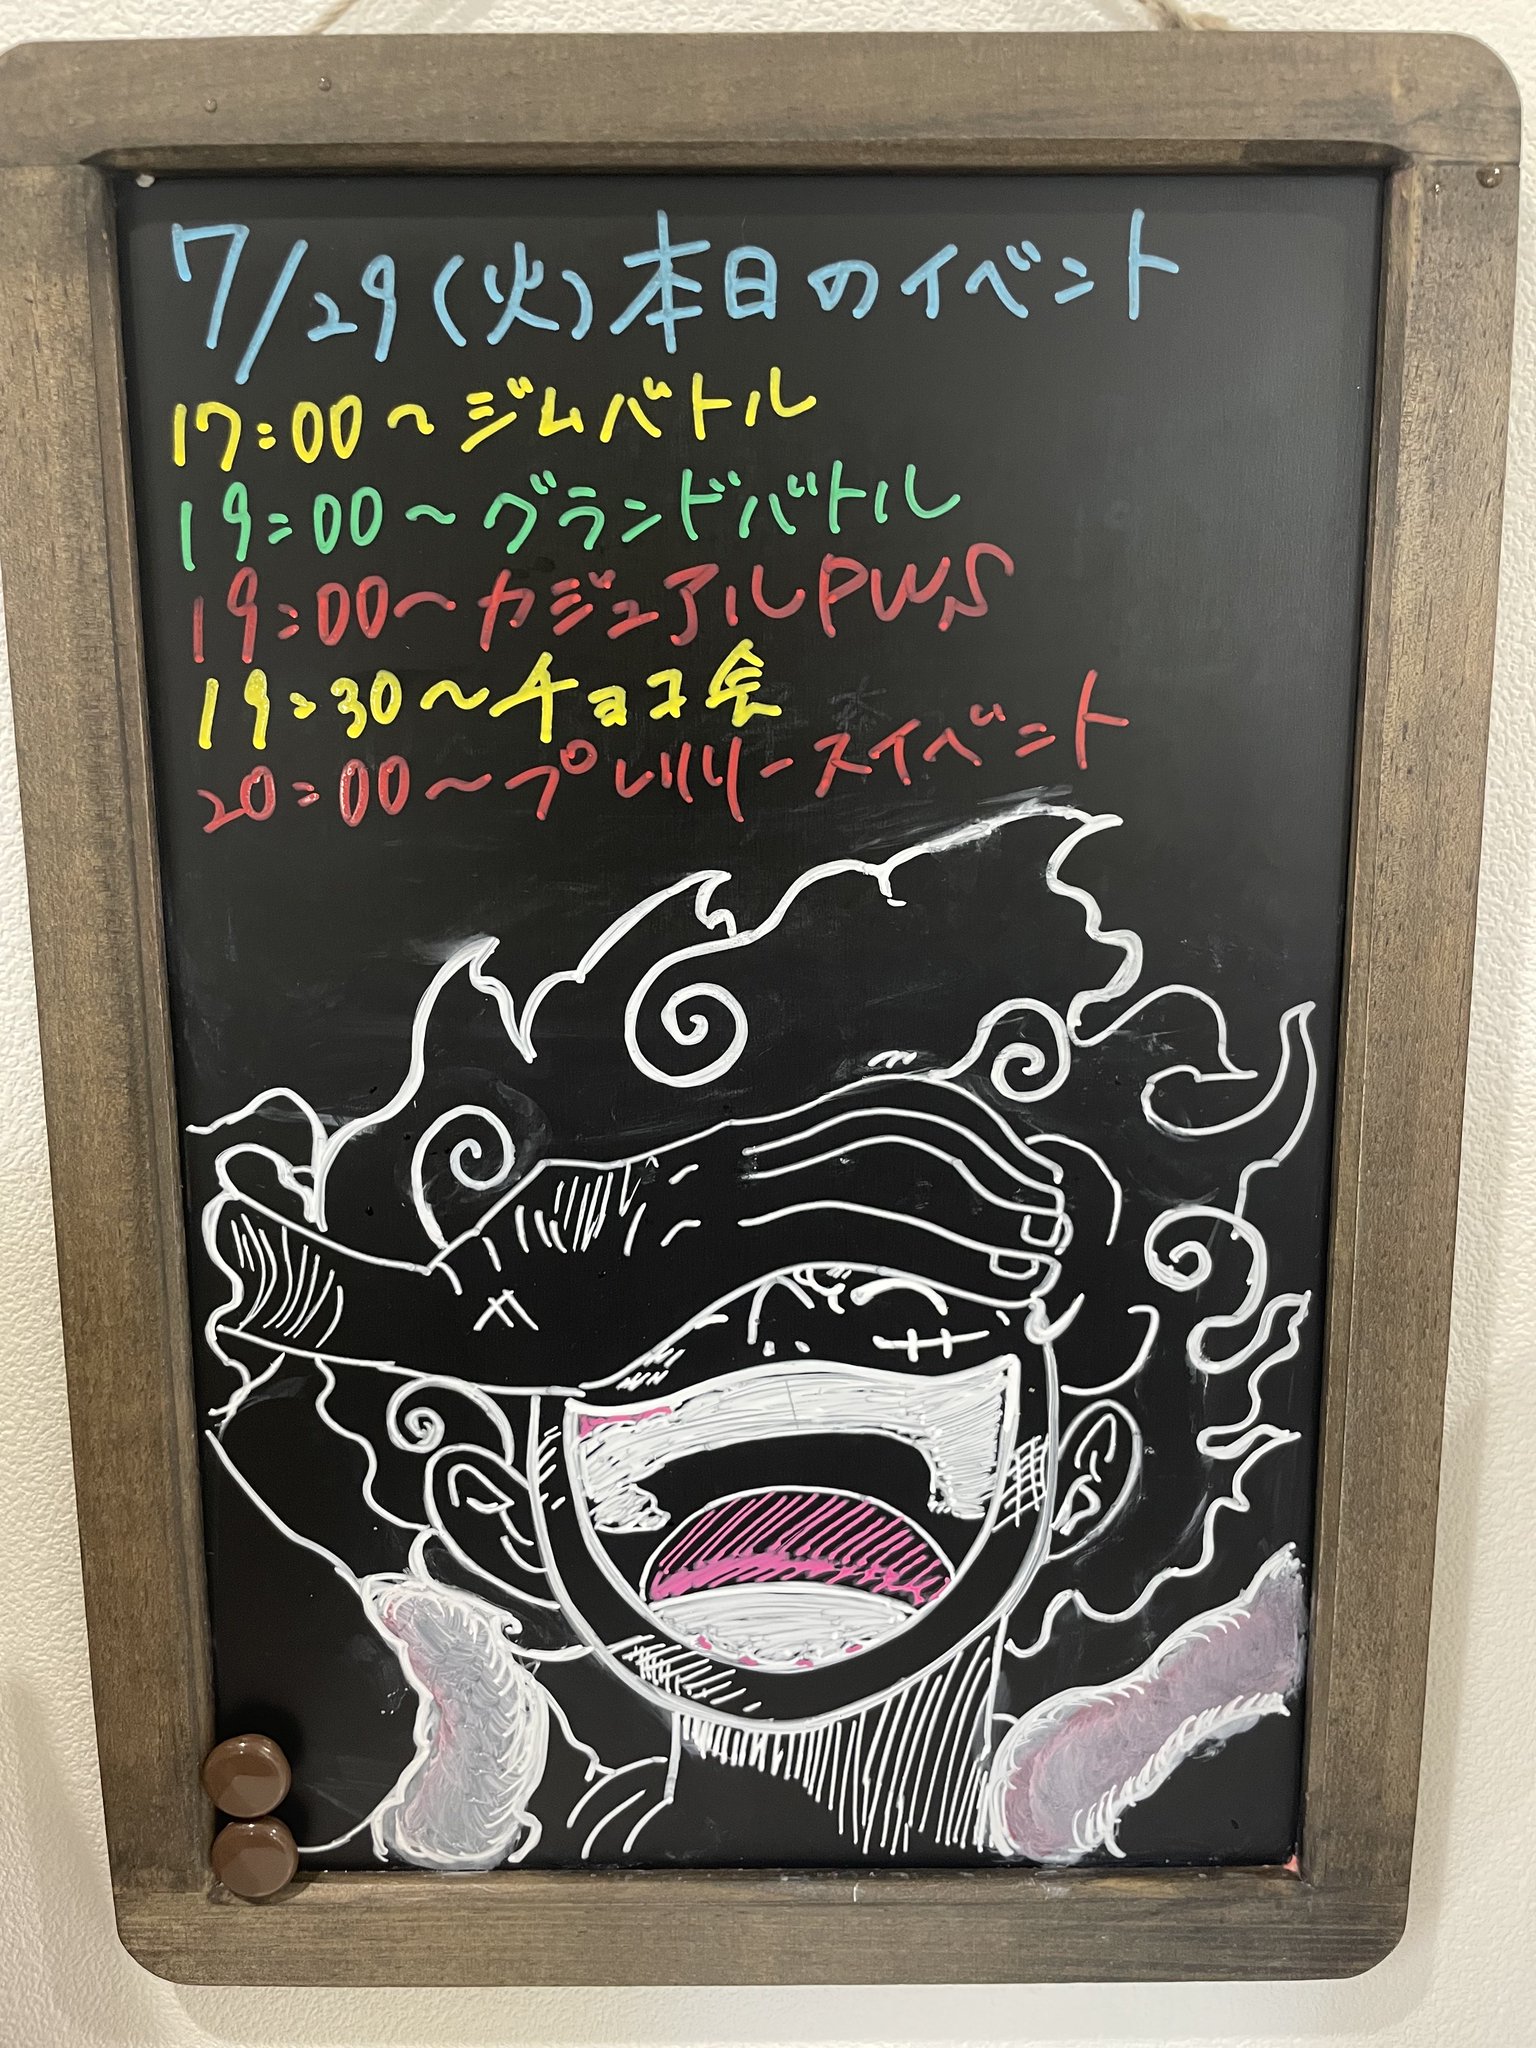 7/29(火)本日のイベント
17:00～ジムバトル
19:00～グランドバトル
19:00～カジュアルPWS
19:30～チョコ会
20:00～プレリリースイベント